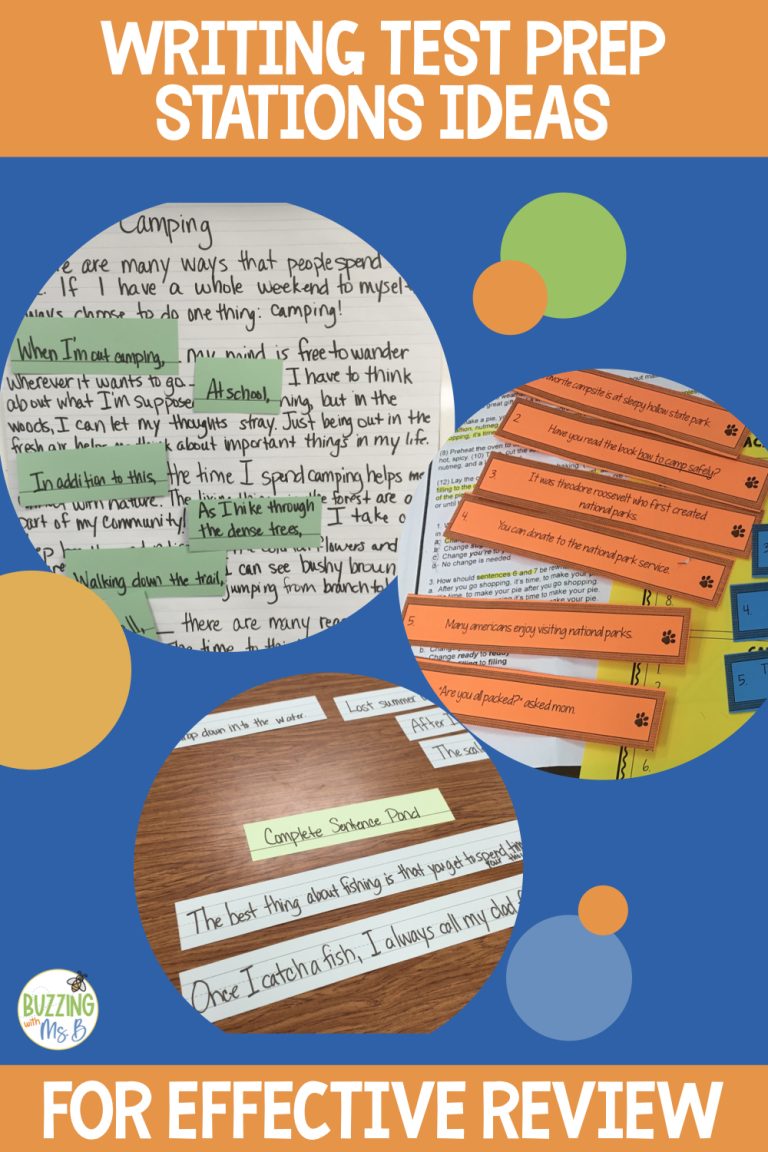 WRITING TEST PREP
STATIONS IDEAS
Camping
are many ways that people spend
If I have a whole weekend to mysel-
choose to do one thing: camping!
When I'm out camping, my mind is free to wander
wherever it wants to go
At school, I have to think
about what I'm suppose ning, but in the
woods, I can let my thoughts stray. Just being out in the
fresh air about important things in my life.
In addition to this, the time I spend camping helps me
with nature. the forest are a
part of my community
As I hike through
the dense trees, I take a
flowers and
can see bushy brown
Walking down the trail, jumping from branch to
there are many rea
the time to
favorite campsite is at sleepy hollow state park.
2 Have you read the book how to camp safely?
3. It was theodore roosevelt who first created
national parks.
4. You can donate to the national park service.
5. Many americans enjoy visiting national parks.
"Are you all packed?" asked mom.
(8) Preheat the oven to
hot, spicy. (10)
(12) Lay the
No change is needed.
3. How should sentences 6 and 7 be
After you go shopping, it's time, to make your pie
time to make your pie.
Change ready to
to filling
4.
5.
6.
down into the water.
Lost summer
After I
The scal
Complete Sentence Pond
The best thing about fishing is that you get to spend
Once I catch a fish, I always call my dad
BUZZING
with
Ms. B
FOR EFFECTIVE REVIEW